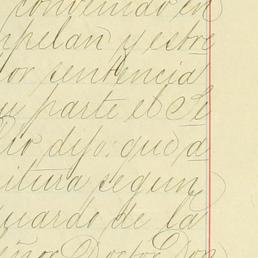 convenido en
mpelan y estre
or sentencia
parte el Se
rio dijo: que a
itura segun
uardo de la
eñor Doctor Don